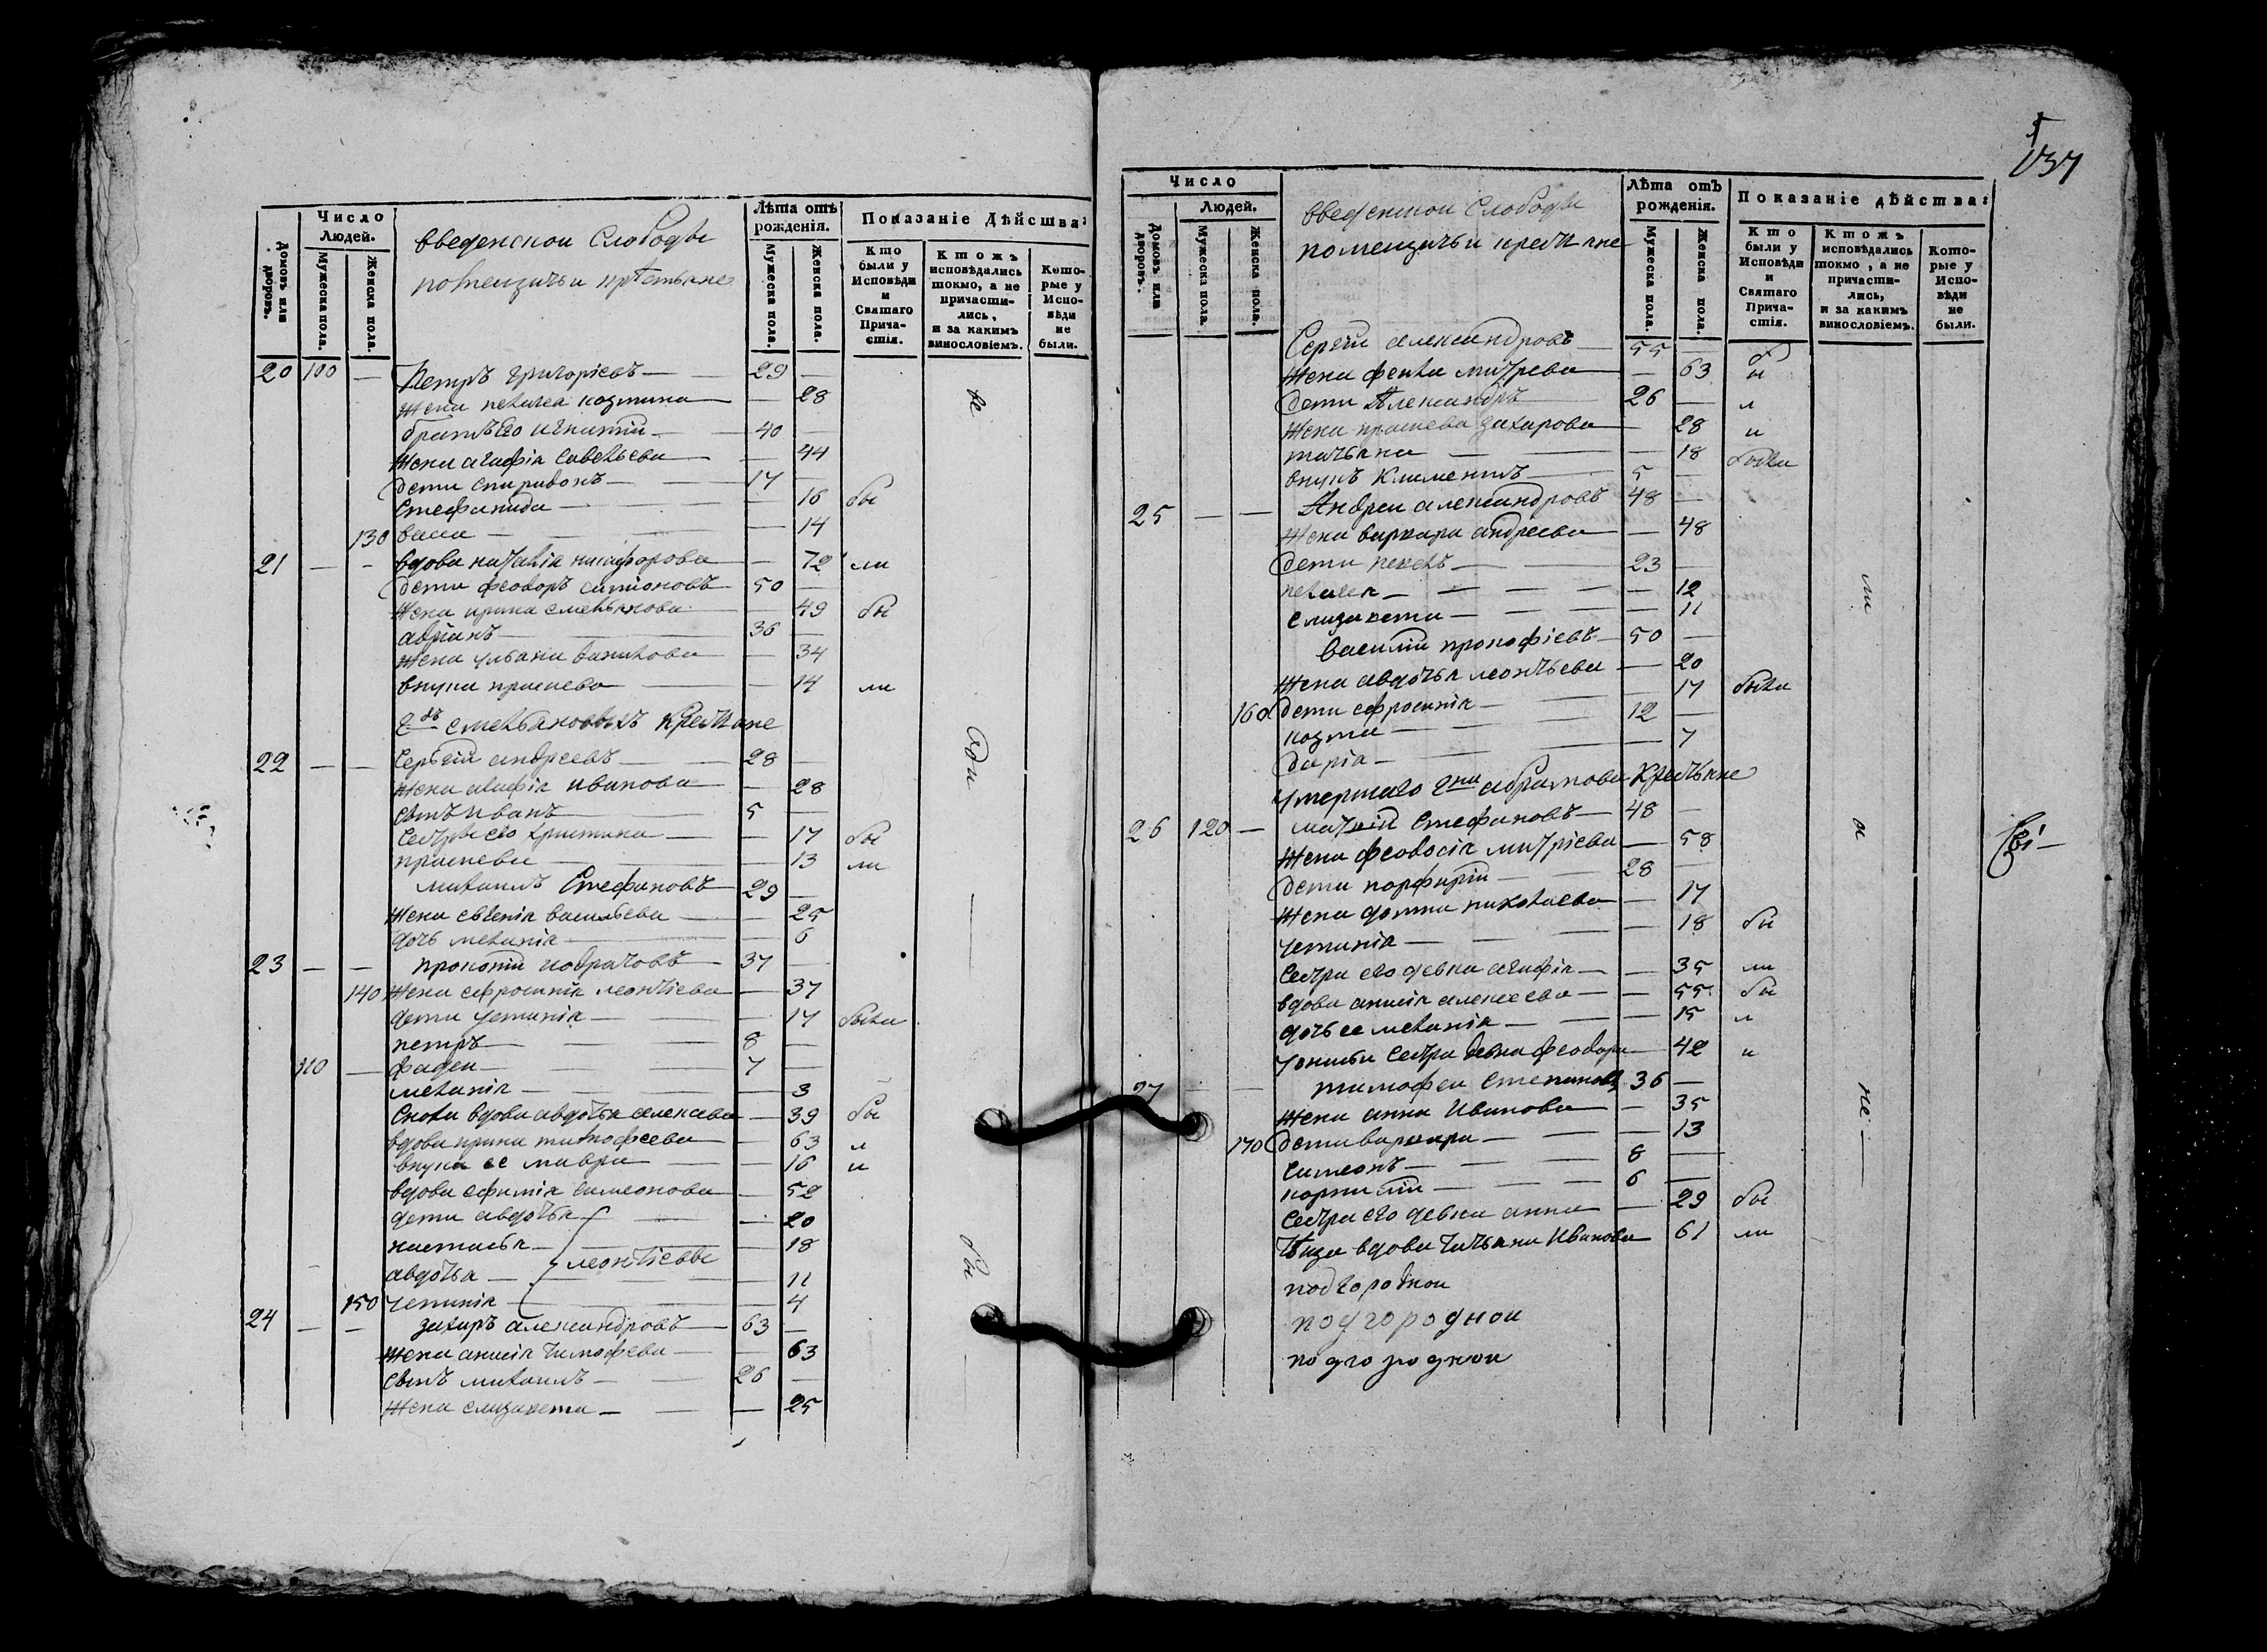 137
Число
Людей.
Домовъ или дворовъ.
Мужеска пола.
Женска пола.
введенскои Слободы
помещичьи крѣстьяне
Лѣта отъ рожденія.
Мужеска пола.
Женска пола.
Показаніе Дѣйства:
Кто были у Исповѣди и Святаго Прича-стія.
Ктожъ исповѣдались токмо, а не причасти-лись, и за какимъ винословіемъ.
Кото-рые у Испо-вѣди не были.
20 100 — Петръ григорієвъ — 29 —
жена пелагея козмина — 28
братъ его игнатій — 40 —
жена агафія савельева — 44
дети спиридонъ — 17 —
Стефанида — 16 бы
130 васса — 14
21 — - вдова наталія никифорова — 72 ли
дети феодоръ симіоновъ — 50 —
жена ирина емельянова — 49 бы
адріанъ — 36 —
жена ульяна — 34
внука прасцева — 14 ли
емельановыхъ крестьяне
22 — — Сергій андреевъ — 28 —
жена агафія иванова — 28
сынъ иванъ 5 —
сестры его христина — 17 бы
прасцева — 13 ли
михаилъ Стефановъ — 29 —
жена евгенія васильева — 25
дочь меланія — 6
23 — — прокопій кодратовъ — 37 —
140 жена ефросинія леонтієва — 37
дети устинія — 17 были
петръ — 8 —
110 — фадеи — 7 —
меланія — 3
Сноха вдова авдотья алексеева — 39 бы
вдова ирина тимофеева — 63 л
внука ее мавра — 16 и
вдова ефимія симеонова — 52
дети авдотья — 20
настасья — леонтієвы — 18
авдотья — 11
150 устинія — 4
24 — — захаръ александровъ — 63 —
жена анисія тимофеева — 63
сынъ михаилъ — 26 —
жена елизавета — 25
все
бы
Число
Людей.
Домовъ или дворовъ.
Мужеска пола.
Женска пола.
введенскои Слободы
помещичьи крестьяне
Лѣта отъ рожденія.
Мужеска пола.
Женска пола.
Показаніе дѣйства:
Кто были у Исповѣди и Святаго Прича-стія.
Ктожъ исповѣдались токмо, а не причасти-лись, и за какимъ винословіемъ.
Кото-рые у Испо-вѣди не были.
Сергій александровъ 55 — б
жена фекла митрева — 63 ы
дети Александръ — 26 — л
жена прасцева захарова — 28 и
татьяна — 18 были
внукъ Климентъ — 5 —
25 — — Андреи александровъ 48 —
жена варвара андреева — 48
дети — 23 —
пелагея — 12
елизавета — 11
василій прокофієвъ — 50 —
жена авдотья леонтьева — 20
160 дети ефросинія — 17 были
козма — 12 —
дарія — 7
умершаго гна абрамова крестьяне
26 120 — Стефановъ — 48 —
жена феодосія митрієва — 58
дети порфирій — 28 —
жена домна николаева — 17
устинія — 18 бы
сестра его девка агафія — 35 ли
вдова анисія алексеева — 55 бы
дочь ее меланія — 15 л
Сестра девка феодора — 42 и
27 — — тимофеи Степановъ 36 —
жена анна Иванова — 35
170 дети варвара — 13
симеонъ — 8 —
корнилій — 6 —
сестра его девка анна — 29 бы
вдова татьяна Иванова 61 ли
подгороднои
подгороднои
подгороднои
ли
и
не —